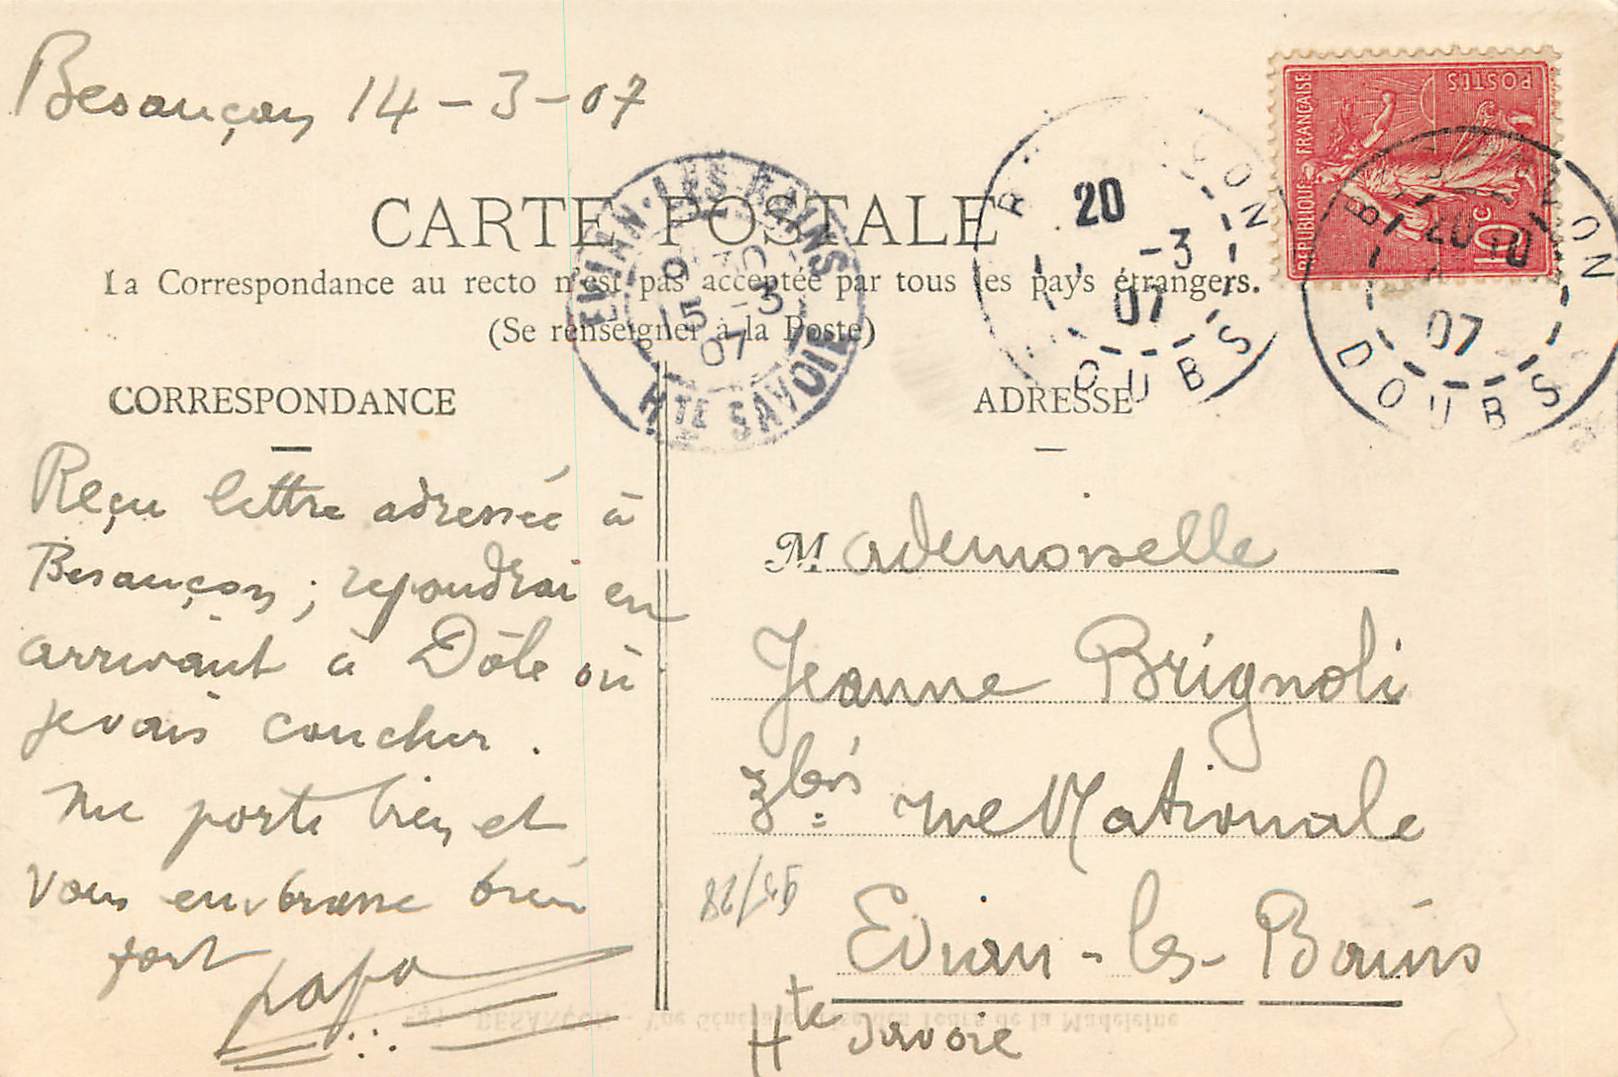 Besançon 14-3-07
CARTE POSTALE
La Correspondance au recto n'est pas acceptée par tous les pays étrangers.
(Se renseigner à la Poste)
CORRESPONDANCE
Reçu lettre adressée à
Besançon ; repondrai en
arrivant à Dôle où
je vais coucher.
Me porte bien et
vous embrasse bien
fort
papa
ADRESSE
Mademoiselle
Jeanne Brignoli
3 bis rue Nationale
Evian-les-Bains
Hte Savoie
EVIAN-LES-BAINS
15 -3
07
HTE SAVOIE
20
-3
07
DOUBS
REPUBLIQUE FRANÇAISE
POSTES
10c
07
DOUBS
BESANÇON - Vue Générale prise des Tours de la Madeleine